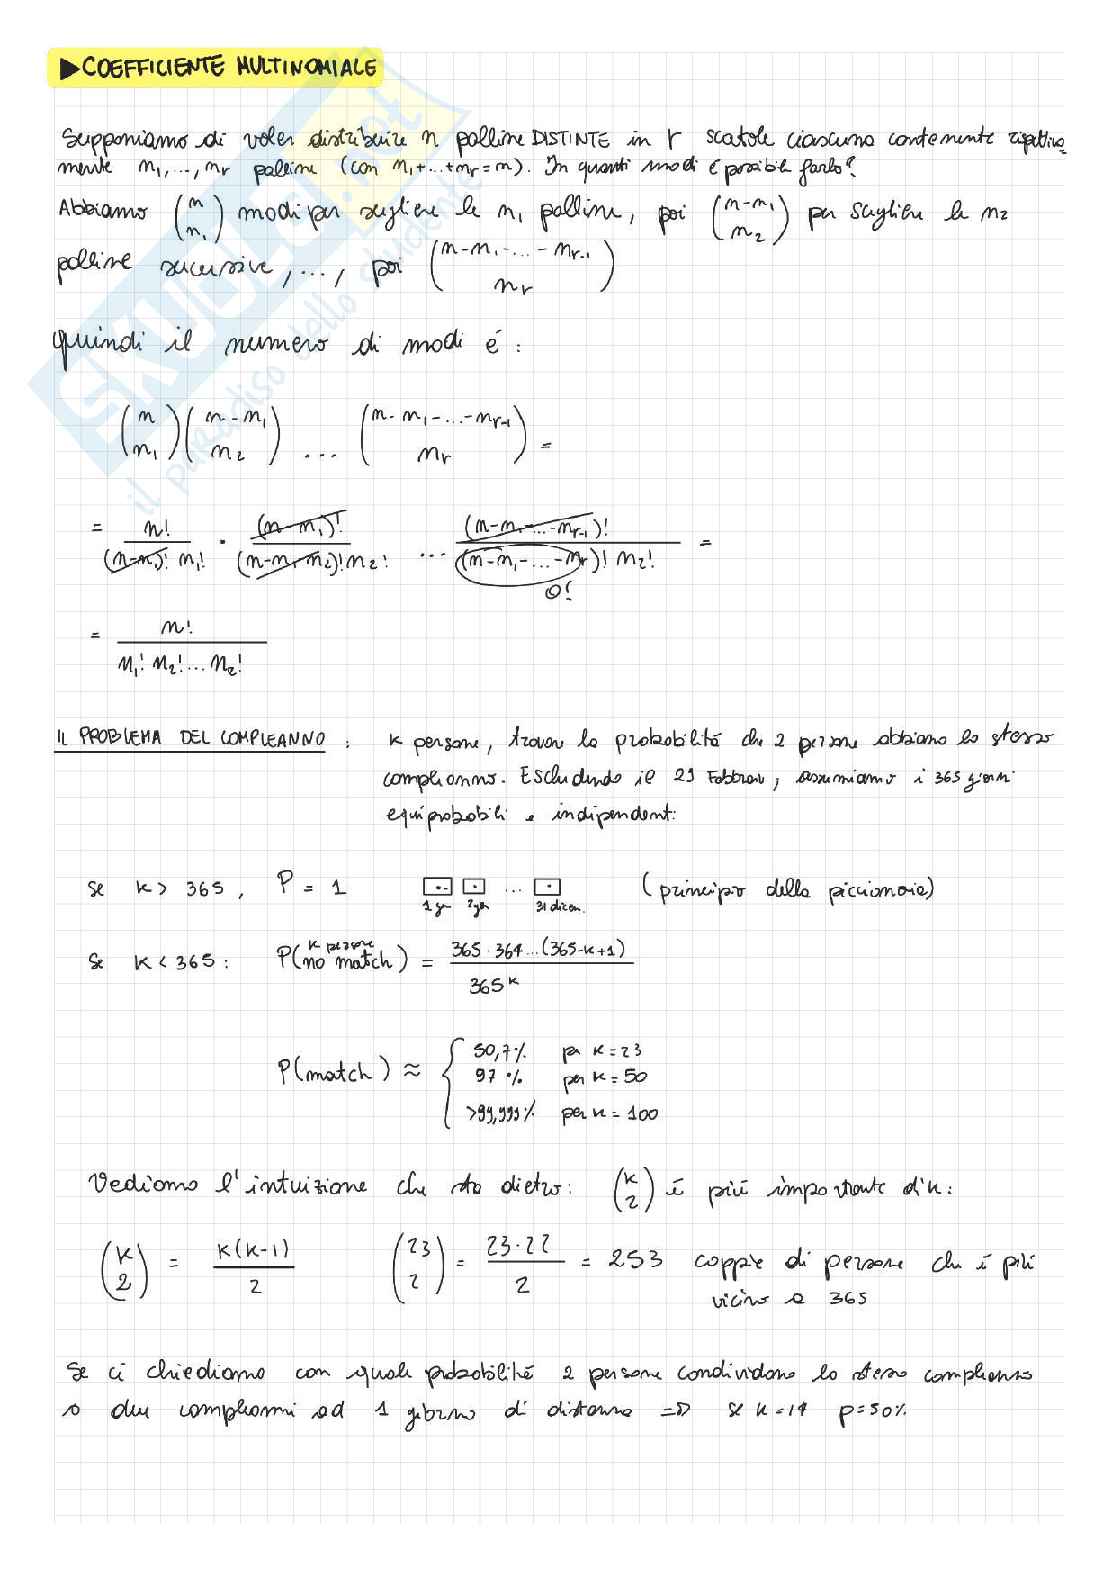 ▶COEFFICIENTE MULTINOMIALE
Supponiamo di voler distribuire n palline DISTINTE in r scatole ciascuna contenente rispettiva
mente n₁, ..., nr palline (con n₁+...+nr=n). In quanti modi é possibile farlo?
Abbiamo (n n₁) modi per scegliere le n₁ palline, poi (n-n₁ n₂) per scegliere le n₂
palline successive, ..., poi (n-n₁-...-nr-1 nr)
quindi il numero di modi é :
(n n₁)(n-n₁ n₂) ... (n-n₁-...-nr-1 nr) =
= n!/((n-n₁)! n₁!) · (n-n₁)!/((n-n₁-n₂)! n₂!) ... (n-n₁-...-nr-1)!/((n-n₁-...-nr)! n₂!) =
0!
= n!/(n₁! n₂! ... n₂!)
IL PROBLEMA DEL COMPLEANNO : k persone, trovare la probabilitá che 2 persone abbiano lo stesso
compleanno. Escludendo il 29 Febbraio, assumiamo i 365 giorni
equiprobabili e indipendenti
Se k > 365, P = 1 1 gen 2 gen ... 31 dicem. (principio della piccionaia)
Se k < 365 : P(k persone no match) = 365·364...(365-k+1)/365^k
P(match) ≈ { 50,7% per k=23
97% per k=50
>99,999% per k=100
Vediamo l'intuizione che sta dietro: (k 2) é piú importante di k:
(k 2) = k(k-1)/2 (23 2) = 23·22/2 = 253 coppie di persone che é piú
vicino a 365
Se ci chiediamo con quale probabilitá 2 persone condividano lo stesso compleanno
o due compleanni ad 1 giorno di distanza => se k=14 p=50%
skuola.net
il paradiso dello studente